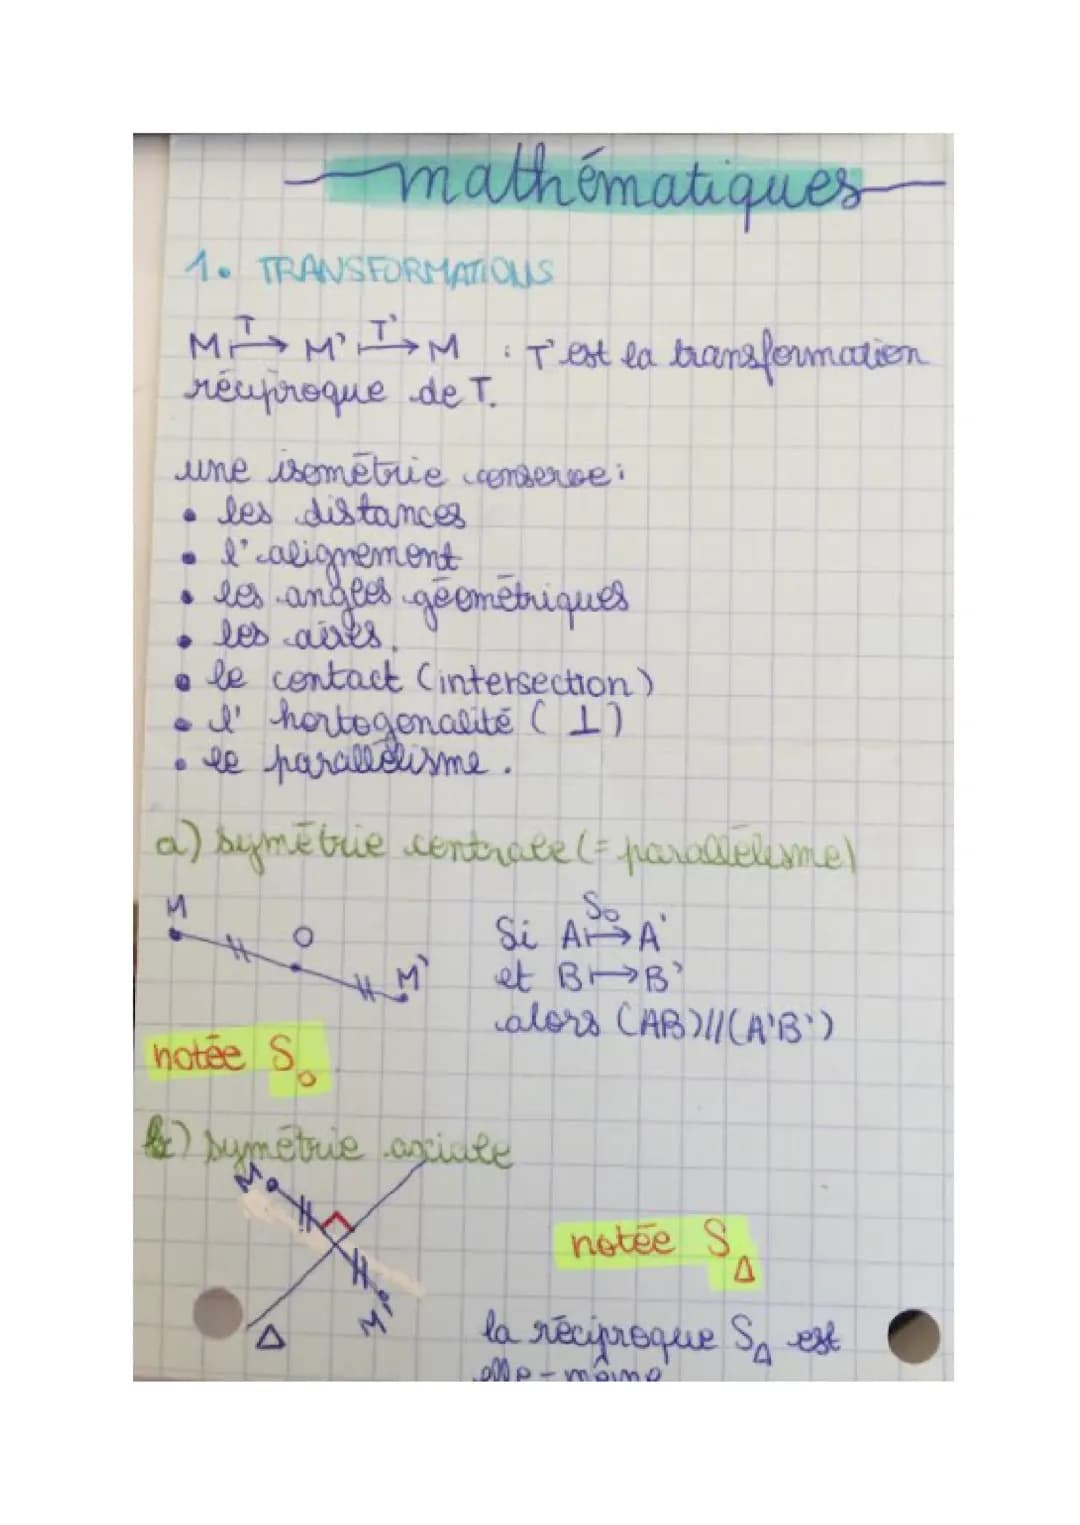 mathématiques
1. TRANSFORMATIONS
M ⟼ᵀ M' ⟼ᵀ' M : T' est la transformation
réciproque de T.
une isométrie conserve :
• les distances
• l'alignement
• les angles géométriques
• les aires.
• le contact (intersection)
• l' hortogonalité ( ⊥ )
• le parallélisme.
a) symétrie centrale (= parallélisme)
M
O
M'
Si A ⟼ A' S₀
et B ⟼ B'
alors (AB)//(A'B')
notée S₀
b) symétrie axiale
M
M'
Δ
notée S_Δ
la réciproque S_Δ est
elle-même